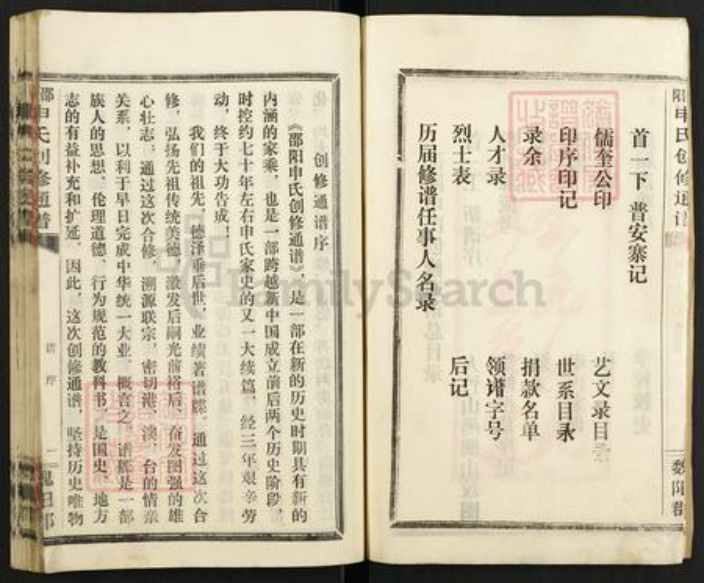 首一下 普安寨记
儒奎公印 艺文录目录
印序印记 世系目录
录余 捐款名单
人才录 领谱字号
烈士表 后记
历届修谱任事人名录
阳申氏创修通谱
魏阳郡
创修通谱序
《邵阳申氏创修通谱》，是一部在新的历史时期具有新的
内涵的家乘，也是一部跨越新中国成立前后两个历史阶段，
时控约七十年左右申氏家史的又一大续篇，经三年艰辛劳
动，终于大功告成！
我们的祖先，德泽垂后世，业绩著谱牒。通过这次合
修，弘扬先祖传统美德，激发后嗣光前裕后，奋发图强的雄
心壮志，通过这次合修，溯源联宗，密切港、澳、台的情亲
关系，以利于早日完成中华统一大业。概言之，谱牒是一部
族人的思想、伦理道德、行为规范的教科书，是国史、地方
志的有益补充和扩延。因此，这次创修通谱，坚持历史唯物
邵申氏创修通谱
谱序
二
FamilySearch